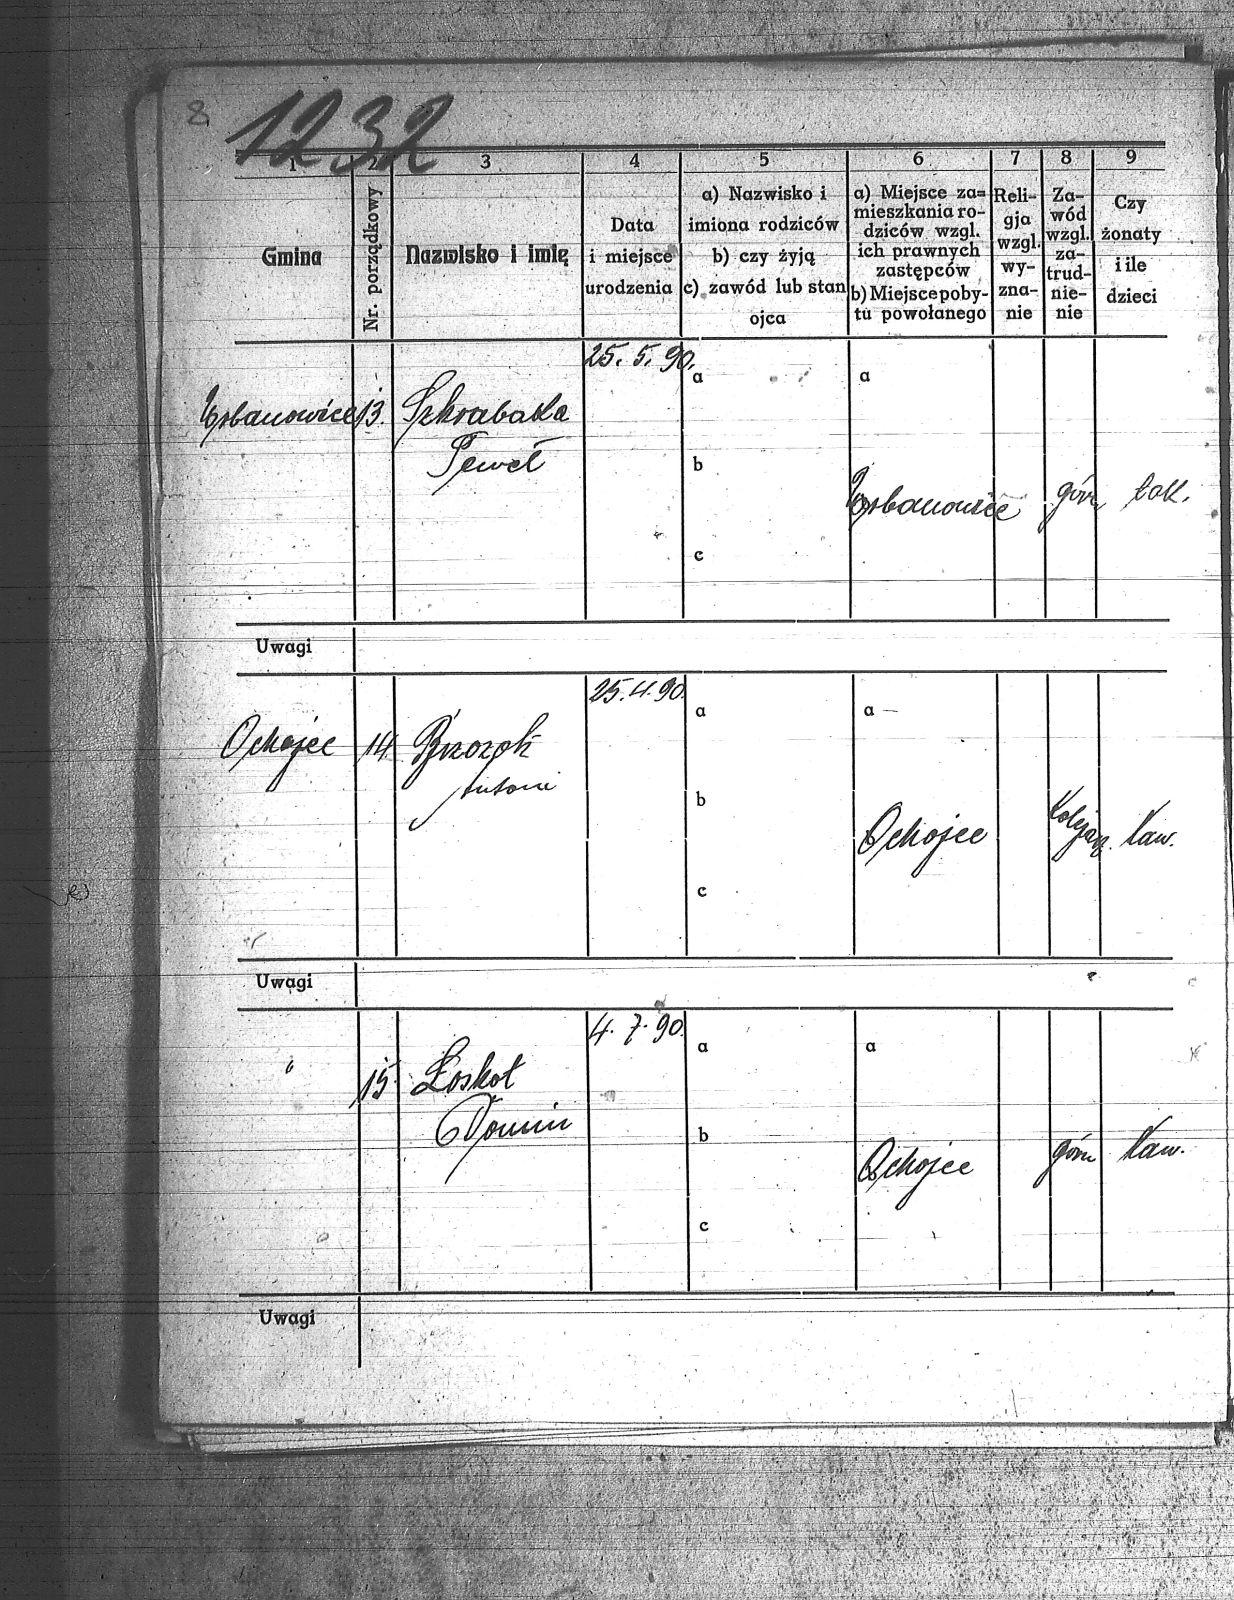 8
1232
1 2 3 4 5 6 7 8 9
Gmina
Nr. porządkowy
Nazwisko i imię
Data
i miejsce
urodzenia
a) Nazwisko i
imiona rodziców
b) czy żyją
c) zawód lub stan
ojca
a) Miejsce za=
mieszkania ro-
dziców wzgl.
ich prawnych
zastępców
b) Miejsce poby-
tu powołanego
Reli-
gja
wzgl.
wy-
zna-
nie
Za-
wód
wzgl.
za-
trud-
nie-
nie
Czy
żonaty
i ile
dzieci
25. 5. 90.
a a
13. Szkrabatka
Paweł
b
górn
c
Uwagi
25. 4. 90.
a a
Ochojec 14 Brzozok
Antoni
b
Ochojec Kolejarz. Kaw.
c
Uwagi
4. 7. 90.
a a
" 15 Łoskot
Domin
b
Ochojec górn Kaw.
c
Uwagi